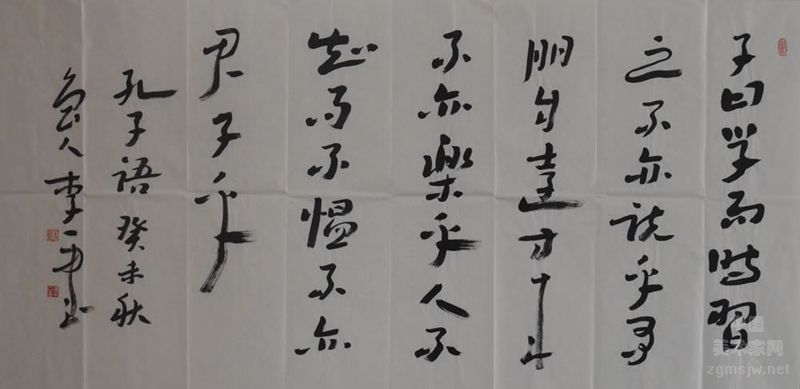 子曰學而時習
之不亦說乎有
朋自遠方来
不亦樂乎人不
知而不慍不亦
君子乎
孔子語 癸未秋
魯人李
美术家网
zgmsjw.net